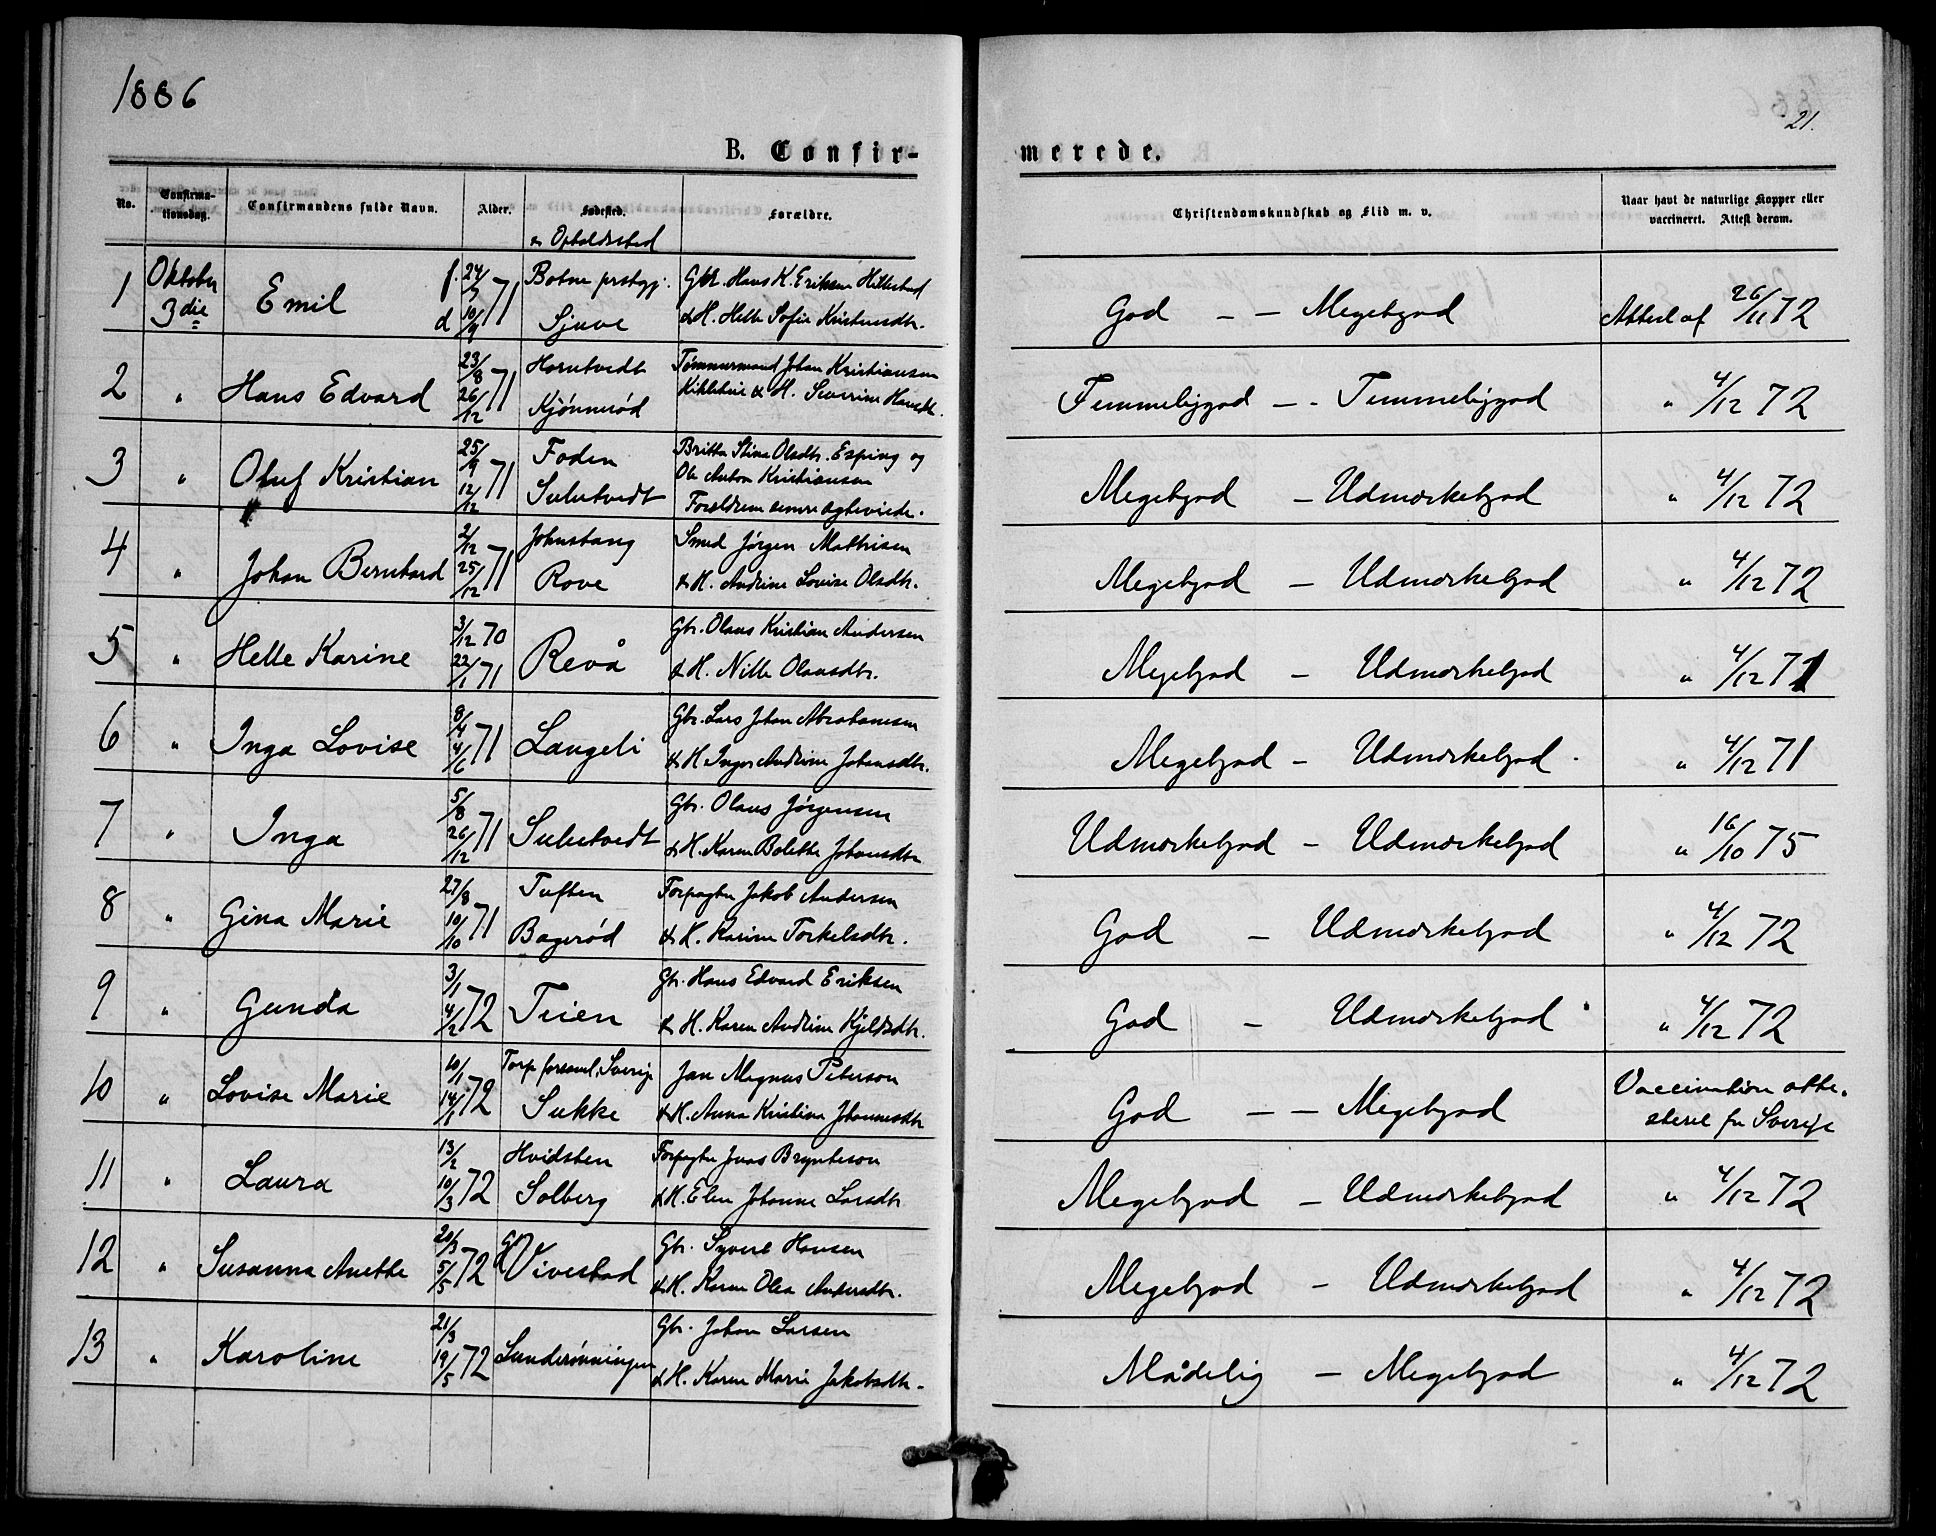 1886
21.
B. Confir-
merede.
No.
Confirma-
tionsdag.
Confirmandens fulde Navn.
Alder.
Fødested.
Forældre.
Christendomskundskab og Flid m. v.
Naar havt de naturlige Kopper eller
vaccineret. Attest derom.
Opholdssted
1 Oktober 3die Emil f. 24/7 d 10/9 71 Botne prstgj. Gbr. Hans K. Eriksen Hillestad
& H. Helle Sofie Kristensdtr.
God - - Megetgod Attest af 26/11 72
2 " Hans Edvard 23/8 26/12 71 Horntvedt Kjønnerød Tømmermand Johan Kristiansen
& H. Severine Hansdt.
Temmeliggod - - Temmeliggod " 4/12 72
3 " Oluf Kristian 25/9 12/12 71 Foden Sulutvedt Britta Stina Olsdtr. Esping og
Ole Anton Kristiansen
Forældrene senere ægteviede.
Megetgod - Udmærketgod " 4/12 72
4 " Johan Bernhard 2/12 25/12 71 Johnstang Rove Smed Jørgen Mathisen
& H. Andrine Lovise Olsdtr.
Megetgod - Udmærketgod " 4/12 72
5 " Helle Karine 3/12 70 22/1 71 Revå Gbr. Olaus Kristian Andersen
& H. Nille Olausdtr.
Megetgod - Udmærketgod " 4/12 71
6 " Inga Lovise 8/4 4/6 71 Langeli Gbr. Lars Johan Abrahamsen
& H. Inger Andrine Johansdtr.
Megetgod - Udmærketgod. " 4/12 71
7 " Inga 5/8 26/12 71 Sulutvedt Gbr. Olaus Jørgensen
& H. Karen Bolette Johansdtr
Udmærketgod - Udmærketgod " 16/10 75
8 " Gina Marie 27/8 10/10 71 Tuften Bagerød Forpagter Jakob Andersen
& H. Karine Torkelsdtr.
God - Udmærketgod " 4/12 72
9 " Gunda 3/1 4/2 72 Teien Gbr. Hans Edvard Eriksen
& H. Karen Andrine Kjeldsdtr.
God - Udmærketgod " 4/12 72
10 " Lovise Marie 10/1 14/1 72 Torp forsaml, Sverige Sukke Jan Magnus Peterson
& H. Anna Kristina Johannesdtr
God - - Megetgod Vaccination atte-
steret fra Sverige
11 " Laura 13/2 10/3 72 Hvidsten Solberg Forpagter Jonas Brynteson
& H. Elen Johanne Larsdtr
Megetgod - Udmærketgod " 4/12 72
12 " Susanna Anette 20/3 5/5 72 Vivestad Gbr. Syvert Hansen
& H. Karen Olea Andersdtr.
Megetgod - Udmærketgod " 4/12 72
13 " Karoline 21/3 19/5 72 Sunderønningen Gbr. Johan Larsen
& H. Karen Marie Jakobsdtr.
Mådelig - Megetgod " 4/12 72